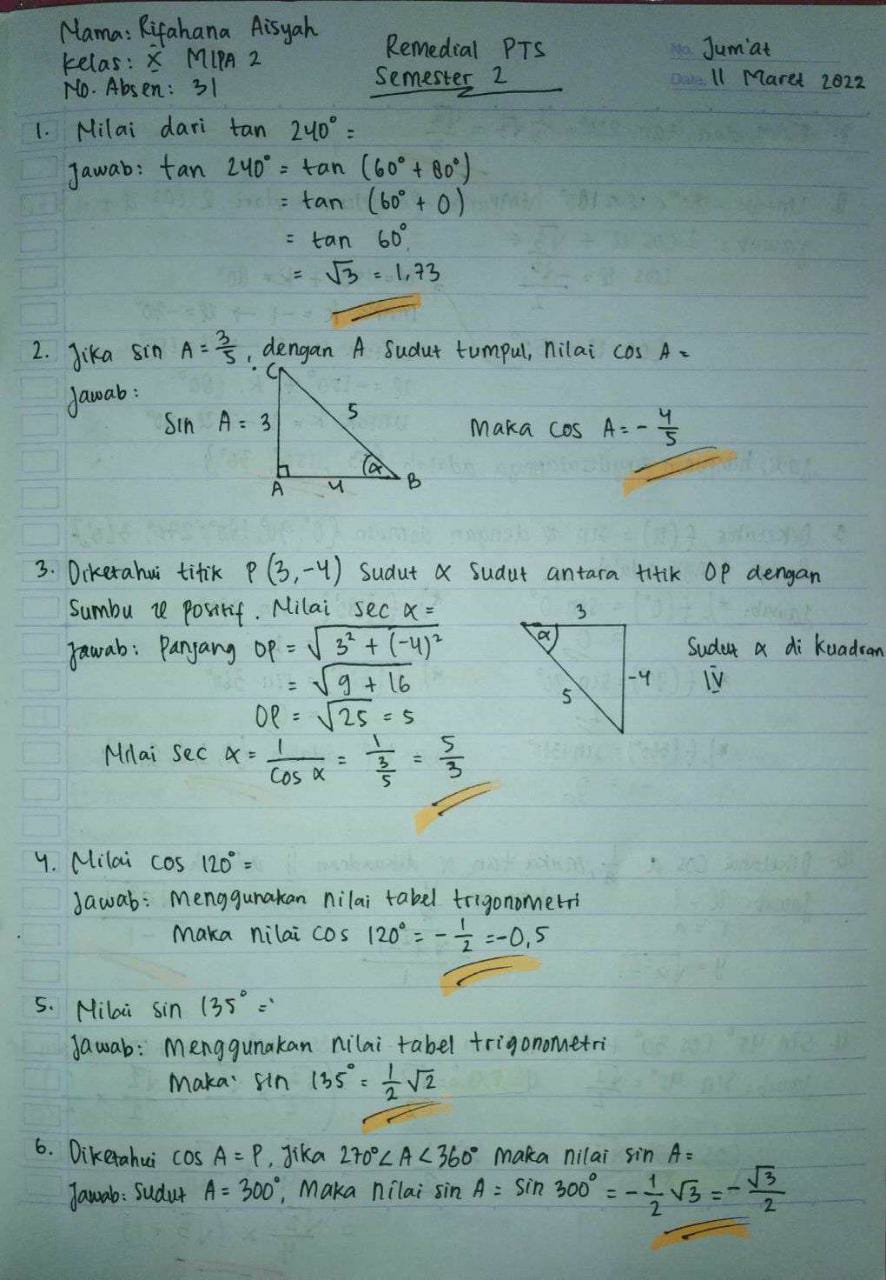 Nama: Rifahana Aisyah
Kelas: X MIPA 2
No. Absen: 31
Remedial PTS
Semester 2
No. Jum'at
Date. 11 Maret 2022
1. Nilai dari tan 240° =
Jawab: tan 240° = tan (60° + 80°)
= tan (60° + 0)
= tan 60°
= √3 = 1,73
2. Jika sin A = 3/5, dengan A sudut tumpul, nilai cos A =
Jawab:
C
Sin A = 3
5
α
A
4
B
Maka cos A = - 4/5
3. Diketahui titik P (3,-4) sudut α sudut antara titik OP dengan
Sumbu x positif. Nilai sec α =
Jawab: Panjang OP = √3² + (-4)²
= √9 + 16
OP = √25 = 5
3
α
5
-4
Sudut α di kuadran
IV
Nilai sec α = 1/cos α = 1/(3/5) = 5/3
4. Nilai cos 120° =
Jawab: Menggunakan nilai tabel trigonometri
Maka nilai cos 120° = - 1/2 = -0,5
5. Nilai sin 135° =
Jawab: Menggunakan nilai tabel trigonometri
Maka: sin 135° = 1/2 √2
6. Diketahui cos A = P, Jika 270° < A < 360° Maka nilai sin A =
Jawab: Sudut A = 300°, Maka nilai sin A = sin 300° = - 1/2 √3 = - √3/2